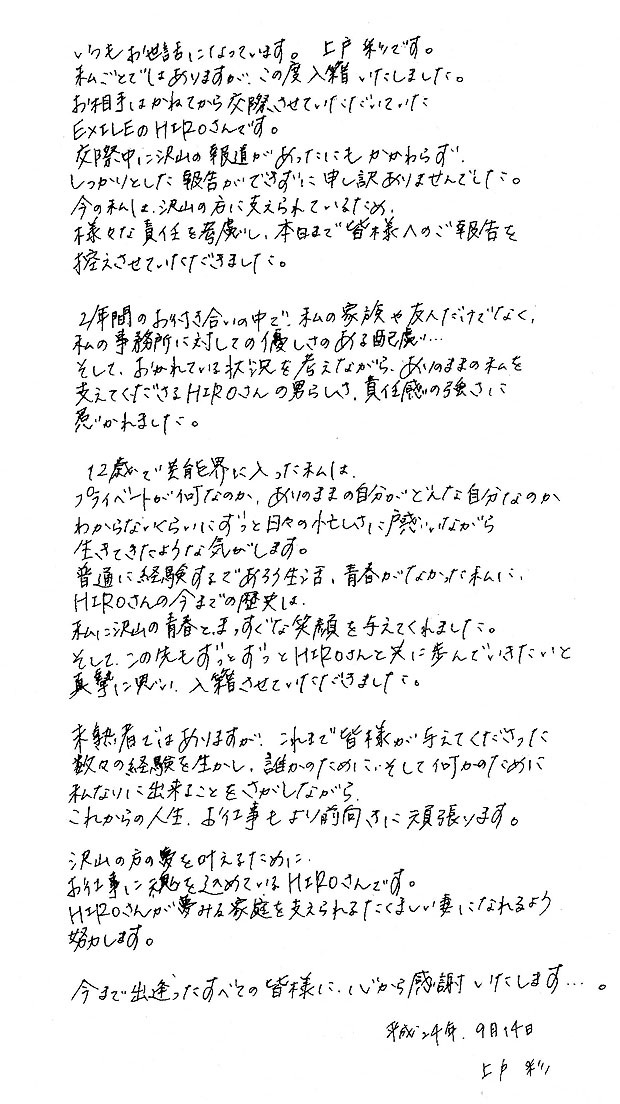 いつもお世話になっています。 上戸 彩です。
私ごとではありますが、この度入籍いたしました。
お相手はかねてから交際させていただいていた
EXILEのHIROさんです。
交際中に沢山の報道があったにもかかわらず、
しっかりとした報告ができずに申し訳ありませんでした。
今の私は、沢山の方に支えられているため、
様々な責任を考慮し、本日まで皆様へのご報告を
控えさせていただきました。
2年間のお付き合いの中で、私の家族や友人だけでなく、
私の事務所に対しての優しさのある配慮…
そして、おかれている状況を考えながら、ありのままの私を
支えてくださるHIROさんの男らしさ、責任感の強さに
惹かれました。
12歳で芸能界に入った私は、
プライベートが何なのか、ありのままの自分がどんな自分なのか
わからないくらいにずっと日々の忙しさに戸惑いながら
生きてきたような気がします。
普通に経験するであろう生活、青春がなかった私に、
HIROさんの今までの歴史は、
私に沢山の青春と、まっすぐな笑顔を与えてくれました。
そして、この先もずっとずっとHIROさんと共に歩んでいきたいと
真摯に思い、入籍させていただきました。
未熟者ではありますが、これまで皆様が与えてくださった
数々の経験を生かし、誰かのために、そして何かのために
私なりに出来ることをさがしながら、
これからの人生、お仕事もより前向きに頑張ります。
沢山の方の夢を叶えるために、
お仕事に魂を込めているHIROさんです。
HIROさんが夢みる家庭を支えられるたくましい妻になれるよう
努力します。
今まで出逢ったすべての皆様に、心から感謝いたします…。
平成24年、9月14日
上戸 彩